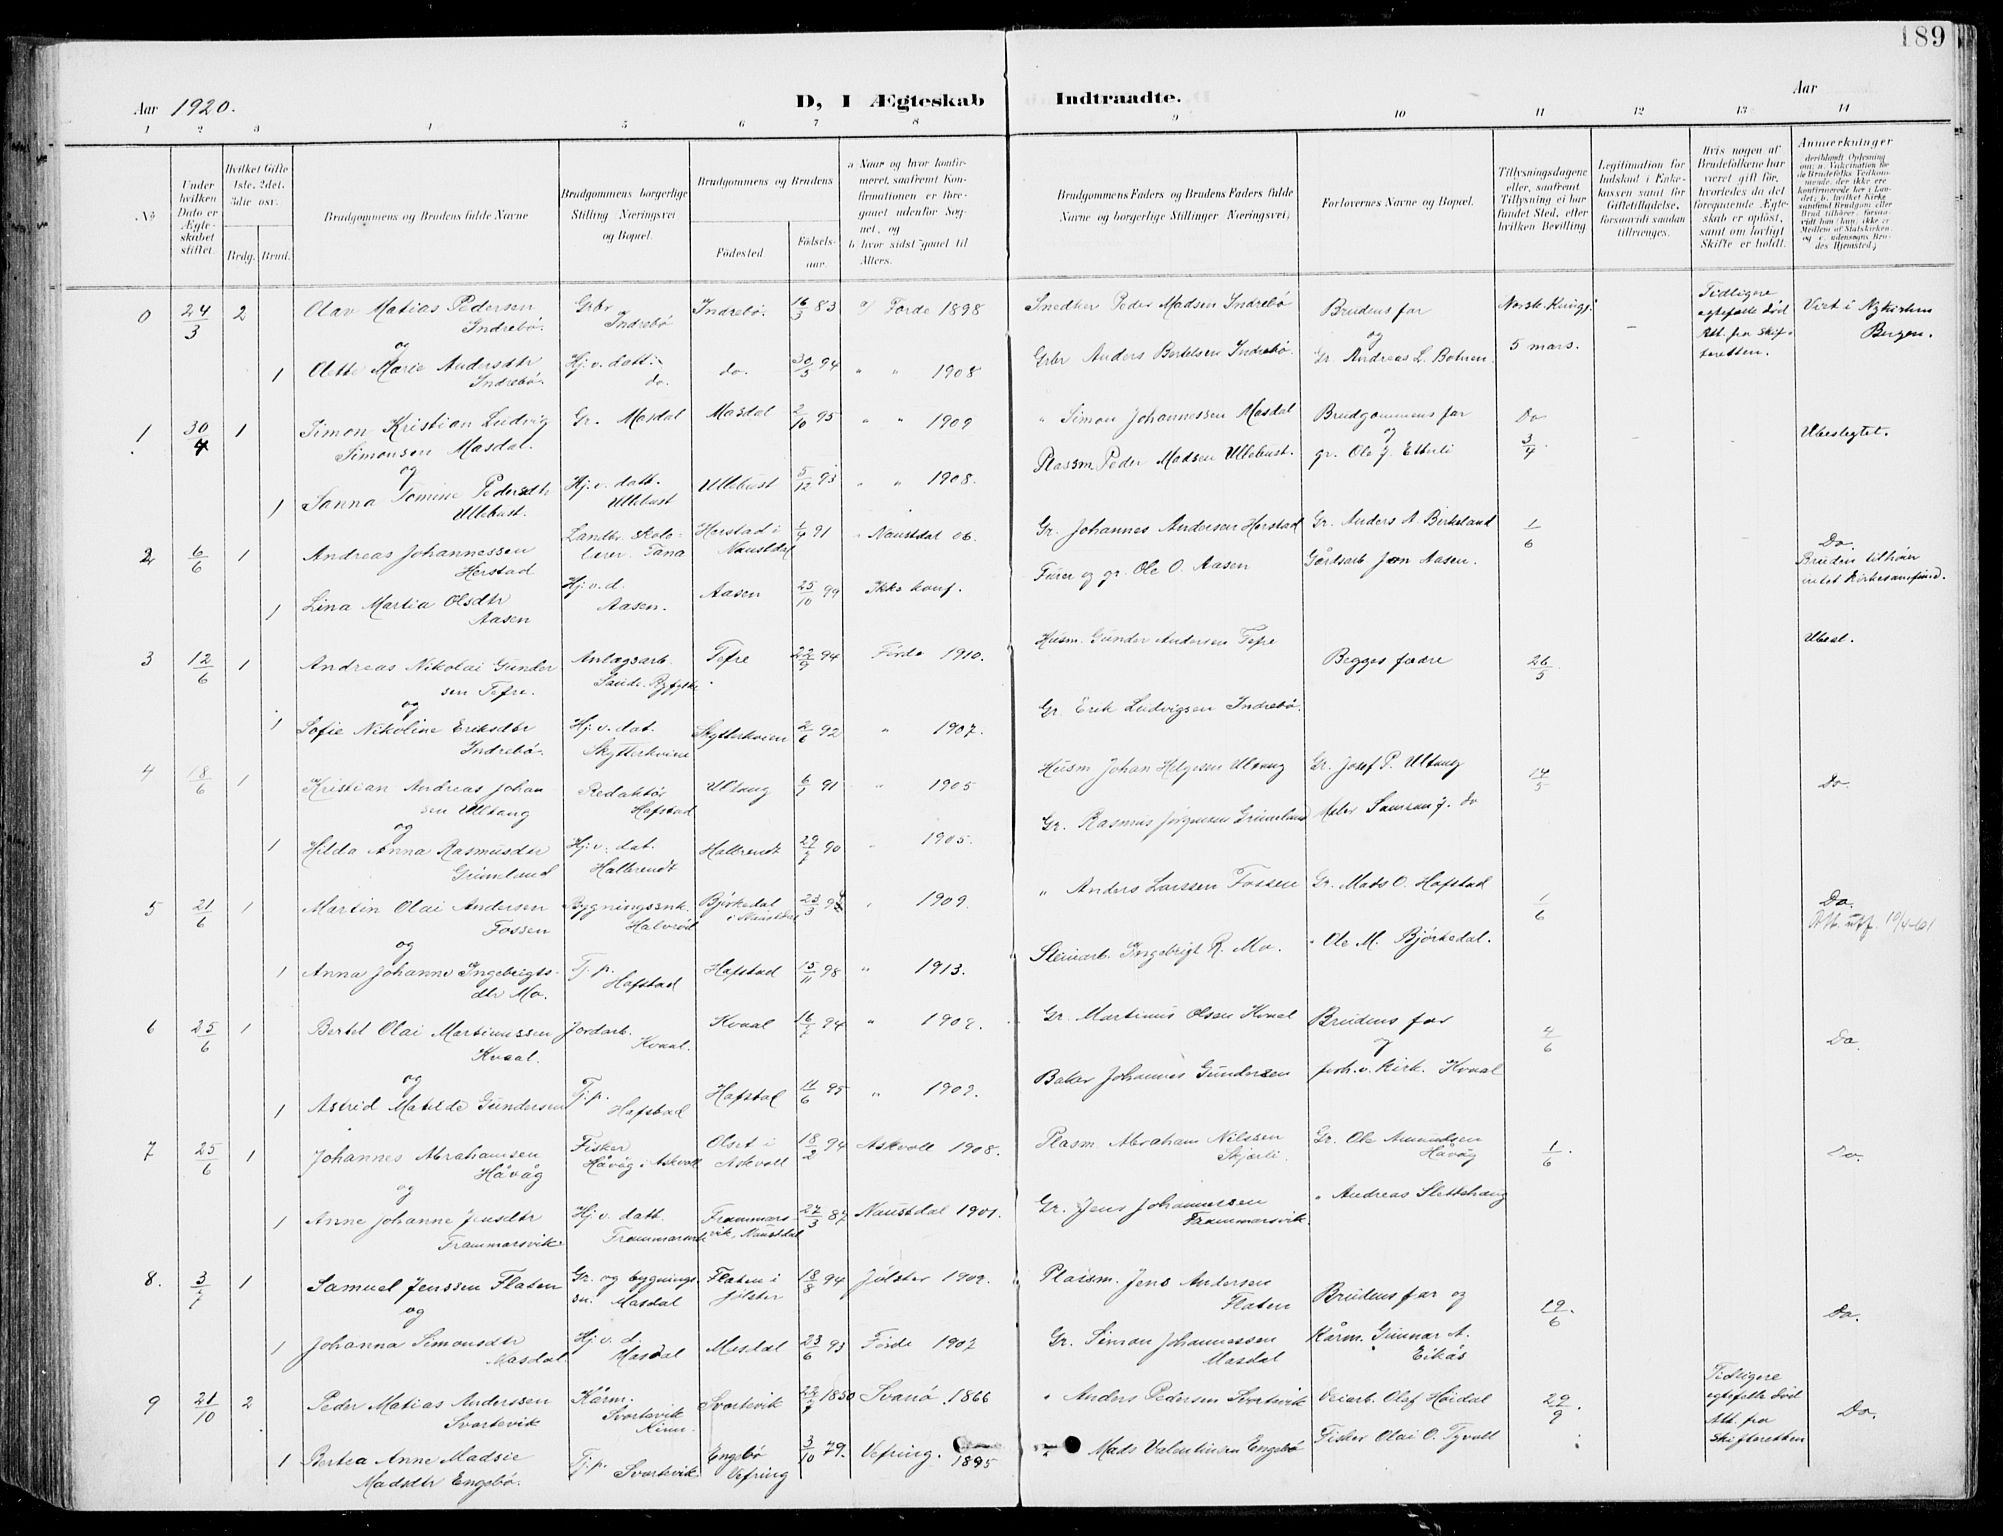 189
Aar 1920.
D, I Ægteskab Indtraadte.
Aar
1 2 3 4 5 6 7 8 9 10 11 12 13 14
No
Under hvilken Dato er Ægteskabet stiftet.
Hvilket Gifte 1ste, 2det, 3die osv.
Brdg. Brud.
Brudgommens og Brudens fulde Navne
Brudgommens borgerlige Stilling Næringsvei og Bopæl.
Brudgommens og Brudens
Fødested
Fødselsaar.
a Naar og hvor konfirmeret, saafremt Konfirmationen er foregaaet udenfor Sognet, og
b hvor sidst gaaet til Alters.
Brudgommens Faders og Brudens Faders fulde Navne og borgerlige Stillinger Næringsvei)
Forlovernes Navne og Bopæl.
Tillysningsdagene eller, saafremt Tillysning ei har fundet Sted, efter hvilken Bevilling
Legitimation for Indskud i Enkekassen samt for Giftetilladelse, forsaavidt saadan tiltrænges.
Hvis nogen af Brudefolkene har været gift før, hvorledes da det foregaaende Ægteskab er opløst, samt om lovligt Skifte er holdt.
Anmerkninger
0 24/3 2 Olav Matias Pedersen Indrebø. Grbr Indrebø Indrebø. 16/3 83 a) Førde 1898 Snedker Peder Madsen Indrebø Brudens far Norsk Kungj. Tidligere egtefelle død Att. fra skifteretten. Viet i Nykirken Bergen.
og
1 Olette Marie Andersdtr Indrebø. Hj. v. datt. do. do. 30/3 94 " " 1908 Grbr Anders Bertelsen Indrebø. og Gr. Andreas L. Botnen 5 mars.
1 30/4 1 Simon Kristian Ludvig Simonsen Masdal. Gr. Masdal Masdal 2/10 95 " " 1909 " Simon Johannessen Masdal Brudgommens far Do 3/4 Ubeslegtet.
og
1 Sanna Tomine Pedersdtr Ullebust. Hj. v. datt. Ullebust Ullebust 5/12 93 " " 1908. Plassm. Peder Madsen Ullebust. og gr. Ole J. Etterli
2 6/6 1 Andreas Johannessen Herstad Landbr. skolelærer. Tana Herstad i Naustdal 1/4 91 " Naustdal 06. Gr. Johannes Andersen Herstad Gr. Anders A. Birkeland 1/6 Do. Bruden tilhører intet Kirkesamfund.
1 Lina Martia Olsdtr Aasen Hj. v. d. Aasen. Aasen 25/10 99 Ikke konf. Furer og gr. Ole O. Aasen Gårdsarb Jøen Aasen.
3 12/6 1 Andreas Nikolai Gundersen Tefre. Anlægsarb. Sande. Ryfylke Tefre 22/9 94 Førde 1910. Husm. Gunder Andersen Tefre Begges fædre 26/5 Ubesl.
og
1 Sofie Nikoline Eriksdtr Indrebø. Hj. v. dat. Skytterkvien Skytterkvien 2/6 92 " 1907. Gr. Erik Ludvigsen Indrebø.
4 18/6 1 Kristian Andreas Johansen Ultang Redaktør Hafstad Ultang 6/1 91 " 1905 Husm Johan Helgesen Ultang Gr. Josef P. Ultang 14/5 Do.
og
1 Hilda Anna Rasmusdtr Grimeland Hj. v. dat. Halbrendt Halbrendt 29/7 90 " 1905. Gr. Rasmus Jørgensen Grimeland Maler do
5 21/6 1 Martin Olai Andersen Fossen Bygningssnk. Halvrød Bjørkedal i Naustdal 23/3 9 " 1909. " Anders Larssen Fossen Gr. Mads O. Hafstad 1/6 Do. Att. utf. 10/4-61
og
1 Anna Johanne Ingebrigtsdtr Mo. Tj. p. Hafstad Hafstad 15/11 98 " 1913. Steinarb. Ingebrigt R. Mo. " Ole M. Bjørkedal.
6 25/6 1 Bertel Olai Martinussen Kvaal. Jordarb. Kvaal. Kvaal 16/7 94 " 1909. Gr. Martinus Olsen Kvaal Brudens far 4/6 Do.
og
1 Astrid Matilde Gundersen Tj. p. Hafstad Hafstad 11/6 95 " 1909. Baker Johannes Gundersen og forh. v. Kirk. Kvaal
7 25/6 1 Johannes Abrahamsen Håvåg Fisker Håvåg i Askvoll Olset i Askvoll 18/2 94 Askvoll 1908. Plasm Abraham Nilssen Skjerli. Gr. Ole Amundsen Håvåg 1/6 Do.
og
1 Anne Johanne Jensdtr Frammarsvik Hj. v. datt. Frammarsvik Frammarsvik, Naustdal 27/3 87 Naustdal 1901. Gr. Jens Johannessen Frammarsvik. " Andreas Slettehaug
8. 3/7 1 Samuel Jenssen Flaten Gr. og bygningssn. Masdal Flaten i Jølster 18/8 94 Jølster 1909. Plassm. Jens Andersen Flaten Brudens far og 19/6 Do.
og
1 Johanna Simonsdtr Masdal. Hj. v. d. Masdal Masdal 23/6 93 Førde 1907 Gr. Simon Johannessen Masdal Kårm. Gunnar A. Eikås
9 21/10 2 Peder Matias Anderssen Svartevik Kårm. Svartevik Kinn. Svartevik 22/7 1850 Svanø 1866 " Anders Pedersen Svartevik Veiarb. Olaf Høidal 29/9 Tidligere egtefelle død Att. fra skifteretten Do.
1 Bertea Anne Madsie Madsdtr Engebø. Tj. p. Svartevik. Engebø Vefring 3/10 79. Vefring. 1895 " Mads Valentinsen Engebø Fisker Olai O. Tyvoll